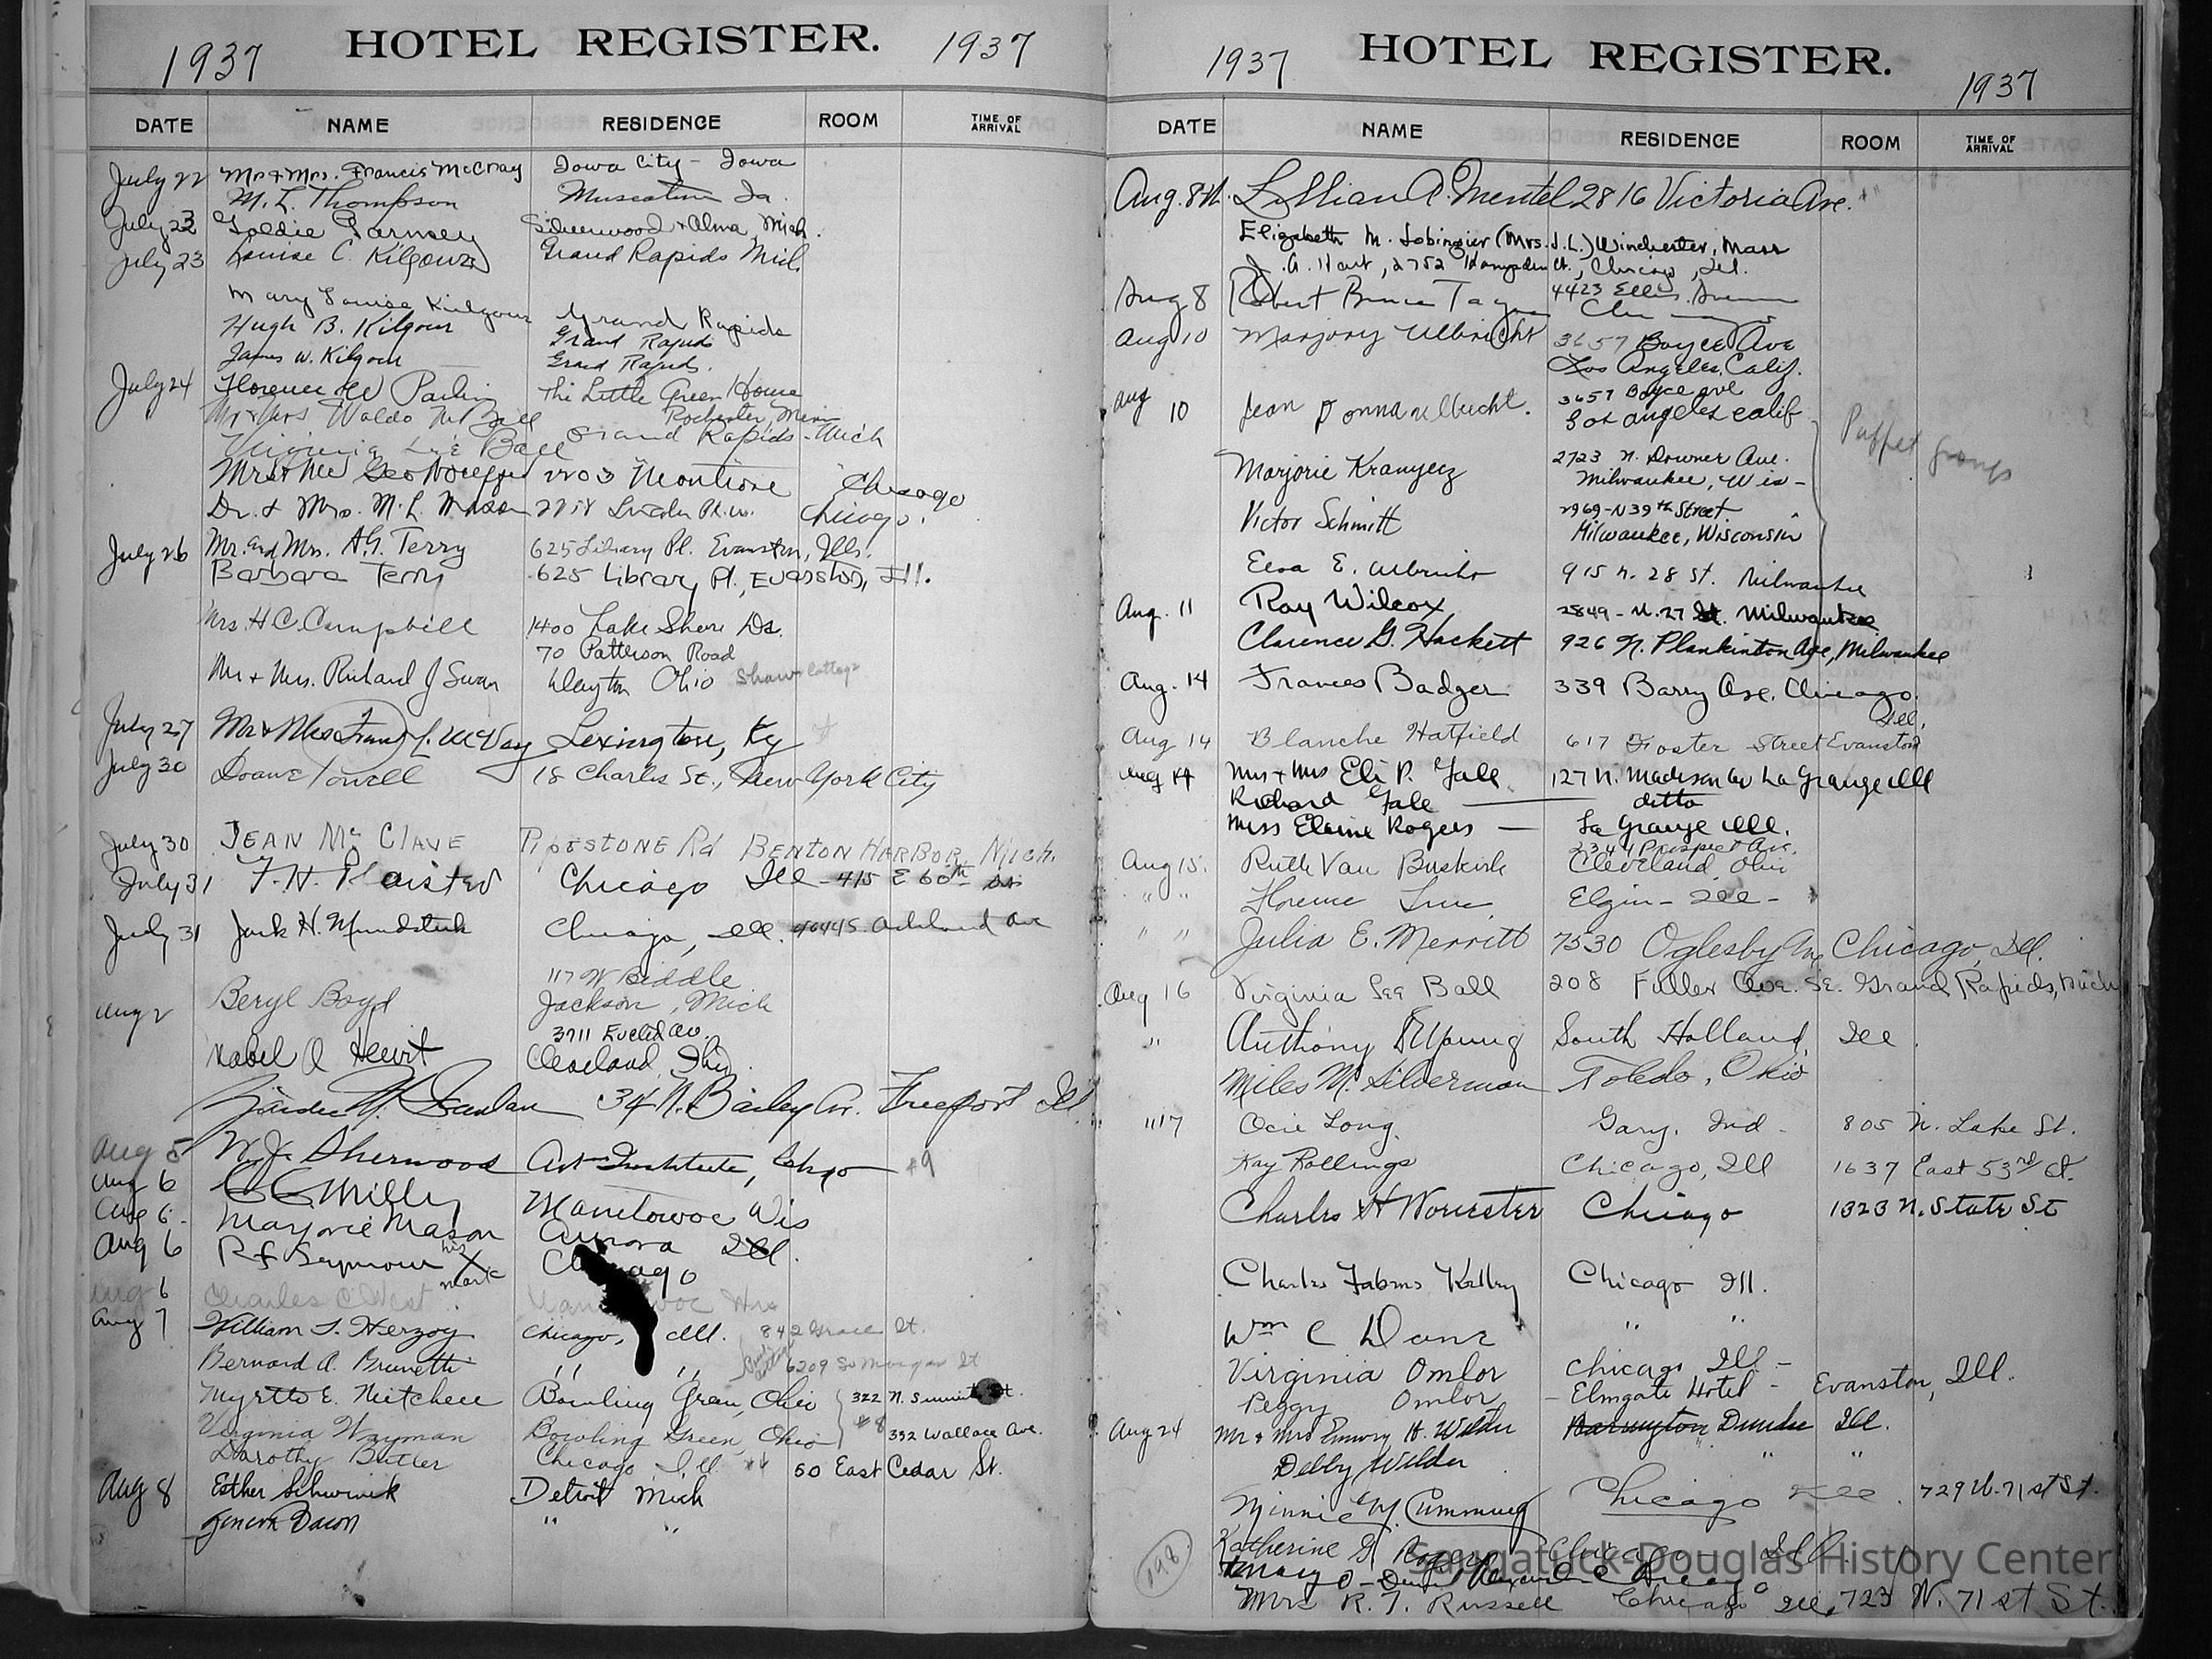 1937 HOTEL REGISTER. 1937
DATE NAME RESIDENCE ROOM TIME OF ARRIVAL
July 22 Mr + Mrs. Francis McCray Iowa City - Iowa
M. L. Thompson Muscatine Ia.
July 23 Goldie Parmsey + Alma, Mich.
July 23 Louise C. Kilgour Grand Rapids Mich.
Mary Louise Kilgour Grand Rapids
Hugh B. Kilgour Grand Rapids
James W. Kilgour Grand Rapids.
July 24 Florence W The Little Green House
Mr + Mrs Waldo M Ball Rochester
Virginia Lee Ball Grand Rapids - Mich
Mr + Mrs Geo Chicago
Dr. + Mrs. M. L. Mason Chicago.
July 26 Mr. and Mrs. A.G. Terry 625 Library Pl. Evanston, Ills.
Barbara Terry 625 Library Pl., Evanston, Ill.
Mrs. H C. Campbell 1400 Lake Shore Dr.
70 Patterson Road
Mr + Mrs. Richard J Swan Dayton Ohio Shaw Cottage
July 27 Mr + Mrs Frank L. McVay Lexington, Ky
July 30 Doane Powell 18 Charles St., New York City
July 30 JEAN Mc CLAVE PIPESTONE Rd BENTON HARBOR, Mich.
July 31 F. H. Plaisted Chicago Ill - 415 E 60th
July 31 Jack H. Chicago, Ill. Ashland Ave
117 W Biddle
Aug 2 Beryl Boyd Jackson, Mich
3711 Euclid Av.
Mabel A Hewit Cleveland, Ohio
34 N. Bailey Av. Freeport Ill
Aug 5 W. J. Sherwood Art Institute, Chgo #9
Aug 6 C C Milly Manitowoc Wis
Aug 6 Marjorie Mason Aurora Ill.
Aug 6 R F Seymour his X mark Chicago
Aug 6 Charles C West
Aug 7 William T. Herzog Chicago, Ill. 842 Grace St.
Bernard A. Brunetti " " 6209 So Morgan St
Myrtle E. Bowling Green, Ohio 322 N. Summit St.
Virginia Wayman Bowling Green, Ohio #8 332 Wallace Ave.
Dorothy Butler Chicago Ill. 50 East Cedar St.
Aug 8 Esther Detroit Mich
" "
1937 HOTEL REGISTER. 1937
DATE NAME RESIDENCE ROOM TIME OF ARRIVAL
Aug. 8th. Lillian A. Mentel 2816 Victoria Ave.
Elizabeth M. Lobingier (Mrs. J.L.) Winchester, Mass
J. A. Hart, 2752 Hampden Ct., Chicago, Ill.
Aug 8 Robert Bruce 4423 Ellis Avenue
Aug 10 Marjory Ulbricht 3657 Boyce Ave
Los Angeles, Calif.
Aug 10 Jean Donna Ulbricht. 3657 Boyce Ave
Los Angeles Calif
Puppet group
Marjorie 2723 N. Downer Ave.
Milwaukee, Wis -
Victor Schmitt 2969 - N 39th Street
Milwaukee, Wisconsin
Elsa E. Ulbricht 915 N. 28 St. Milwaukee
Aug. 11 Ray Wilcox 2849 - N. 27 St. Milwaukee
Clarence G. Hackett 926 N. Plankinton Ave, Milwaukee
Aug. 14 Frances Badger 339 Barry Ave, Chicago. Ill.
Aug 14 Blanche Hatfield 617 Foster Street Evanston
Aug 14 Mr + Mrs Eli P. Gale 127 N. Madison Av La Grange Ill
Richard Gale ditto
Miss Elaine Rogers — La Grange Ill.
2344 Prospect Ave.
Aug 15. Ruth Van Buskirk Cleveland Ohio
" " Florence Elgin - Ill -
" " Julia E. Merritt 7530 Oglesby Av Chicago, Ill.
Aug 16 Virginia Lee Ball 208 Fuller Ave. S.E. Grand Rapids, Mich
" Anthony DeYoung South Holland, Ill.
Miles M. Silverman Toledo, Ohio
" 17 Ocie Long. Gary, Ind - 805 N. Lake St.
Kay Rollings Chicago, Ill 1637 East 53rd St.
Charles H Worcester Chicago 1323 N. State St
Charles Fabens Kelley Chicago Ill.
Wm C Dane " "
Virginia Omlor Chicago Ill -
Peggy Omlor - Elmgate Hotel - Evanston, Ill.
Aug 24 Mr + Mrs Emory H. Wilder Barrington Dundee Ill.
Debby Wilder " "
Minnie M. Cumming Chicago Ill. 729 W. 71st St.
Katherine G. Rogers Chicago Ill.
Mrs R. T. Russell Chicago Ill. 723 W. 71st St.
198
Saugatuck-Douglas History Center